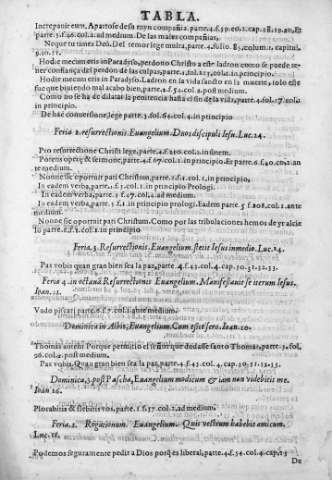 TABLA.
Increpauit eum, Apartose desta muy compañia. parte.4.f.39.co.2. cap.28.29.30. Et
parte.3.f.46.col.2. ad medium. De las malas compañias.
Neque tu times Deũ. Del temor lege multa, parte.4. folio.85. colum.1. capitu.
9.10.11.
Hodie mecum eris in Paradyso, perdono Christo a este ladron como se puede te-
ner confiança del perdon de las culpas, parte.4. fol.113. colu.1. in principio.
Hodie mecum eris in Paradyso. Ladron en la vida sancto en la muerte, solo este
fue que biuiendo mal acabo bien, parte.4. f.54. col.2. a post medium.
Como no se ha de dilatar la penitencia hasta el fin de la vida, parte.4. fol.17. colũ.
in principio.
De hac conuersione, lege parte.3. fol.56. col.4. in principio.
Feria 2. resurrectionis Euangelium. Duo ex discipulis Iesu. Luc.24.
Pro resurrectione Christi lege, parte.4. f.210. col.1. in finem.
Potens opere & sermone, parte.4. f.67. col.1. in principio. Et parte.6. f.40. col.2. an
te medium.
Nonne sic oportuit pati Christum, parte.1. f.1. col.1. in principio
In eadem verba, parte.1. f.31. col.2. in principio Prologi.
In eadem verba, parte.2. f.67. col.2. ad medium.
In eadem verba, parte.5. f.1. in principio prologi. Eadem parte 5 f.208. col.1. ante
medium.
Nonne sic oportuit pati Christum. Como por las tribulaciones hemos de yr al cie
lo parte.1. f.3. col.1 in principio
Feria.3. Resurrectionis. Euangelium. stetit Iesus in medio. Luc.24.
Pax vobis quan gran bien sea la paz, parte.4. f.43. col.4. cap.30.31.32.33.
Feria 4. in octauã Resurrectionis Euangelium. Manifestauit se iterum Iesus.
Ioan.21.
Vado piscari parte.6. f.67. col.2. ante medium.
Dominica in Albis, Euangelium. Cum esset sero. Ioan.20.
Thomas autem Porque permitio el señor que dudasse sancto Thomas, parte.3. fol.
96. col.4. post medium.
Pax vobis. Quan gran bien sea la paz, parte.4. f.43. col.4. cap.30.31.32.33
Dominica.3. post Pascha, Euangelium modicum & iam non videbitis me.
Ioan 16.
Plorabitis & flebitis vos, parte.1. f.37. col.2. ad medium.
Feria.2. Rogationum. Euangelium. Quis vestrum habebit amicum.
Luc.11.
Podemos seguramente pedir a Dios porq̃ es liberal, parte.4. f.54. col.4. cap.22.23
De